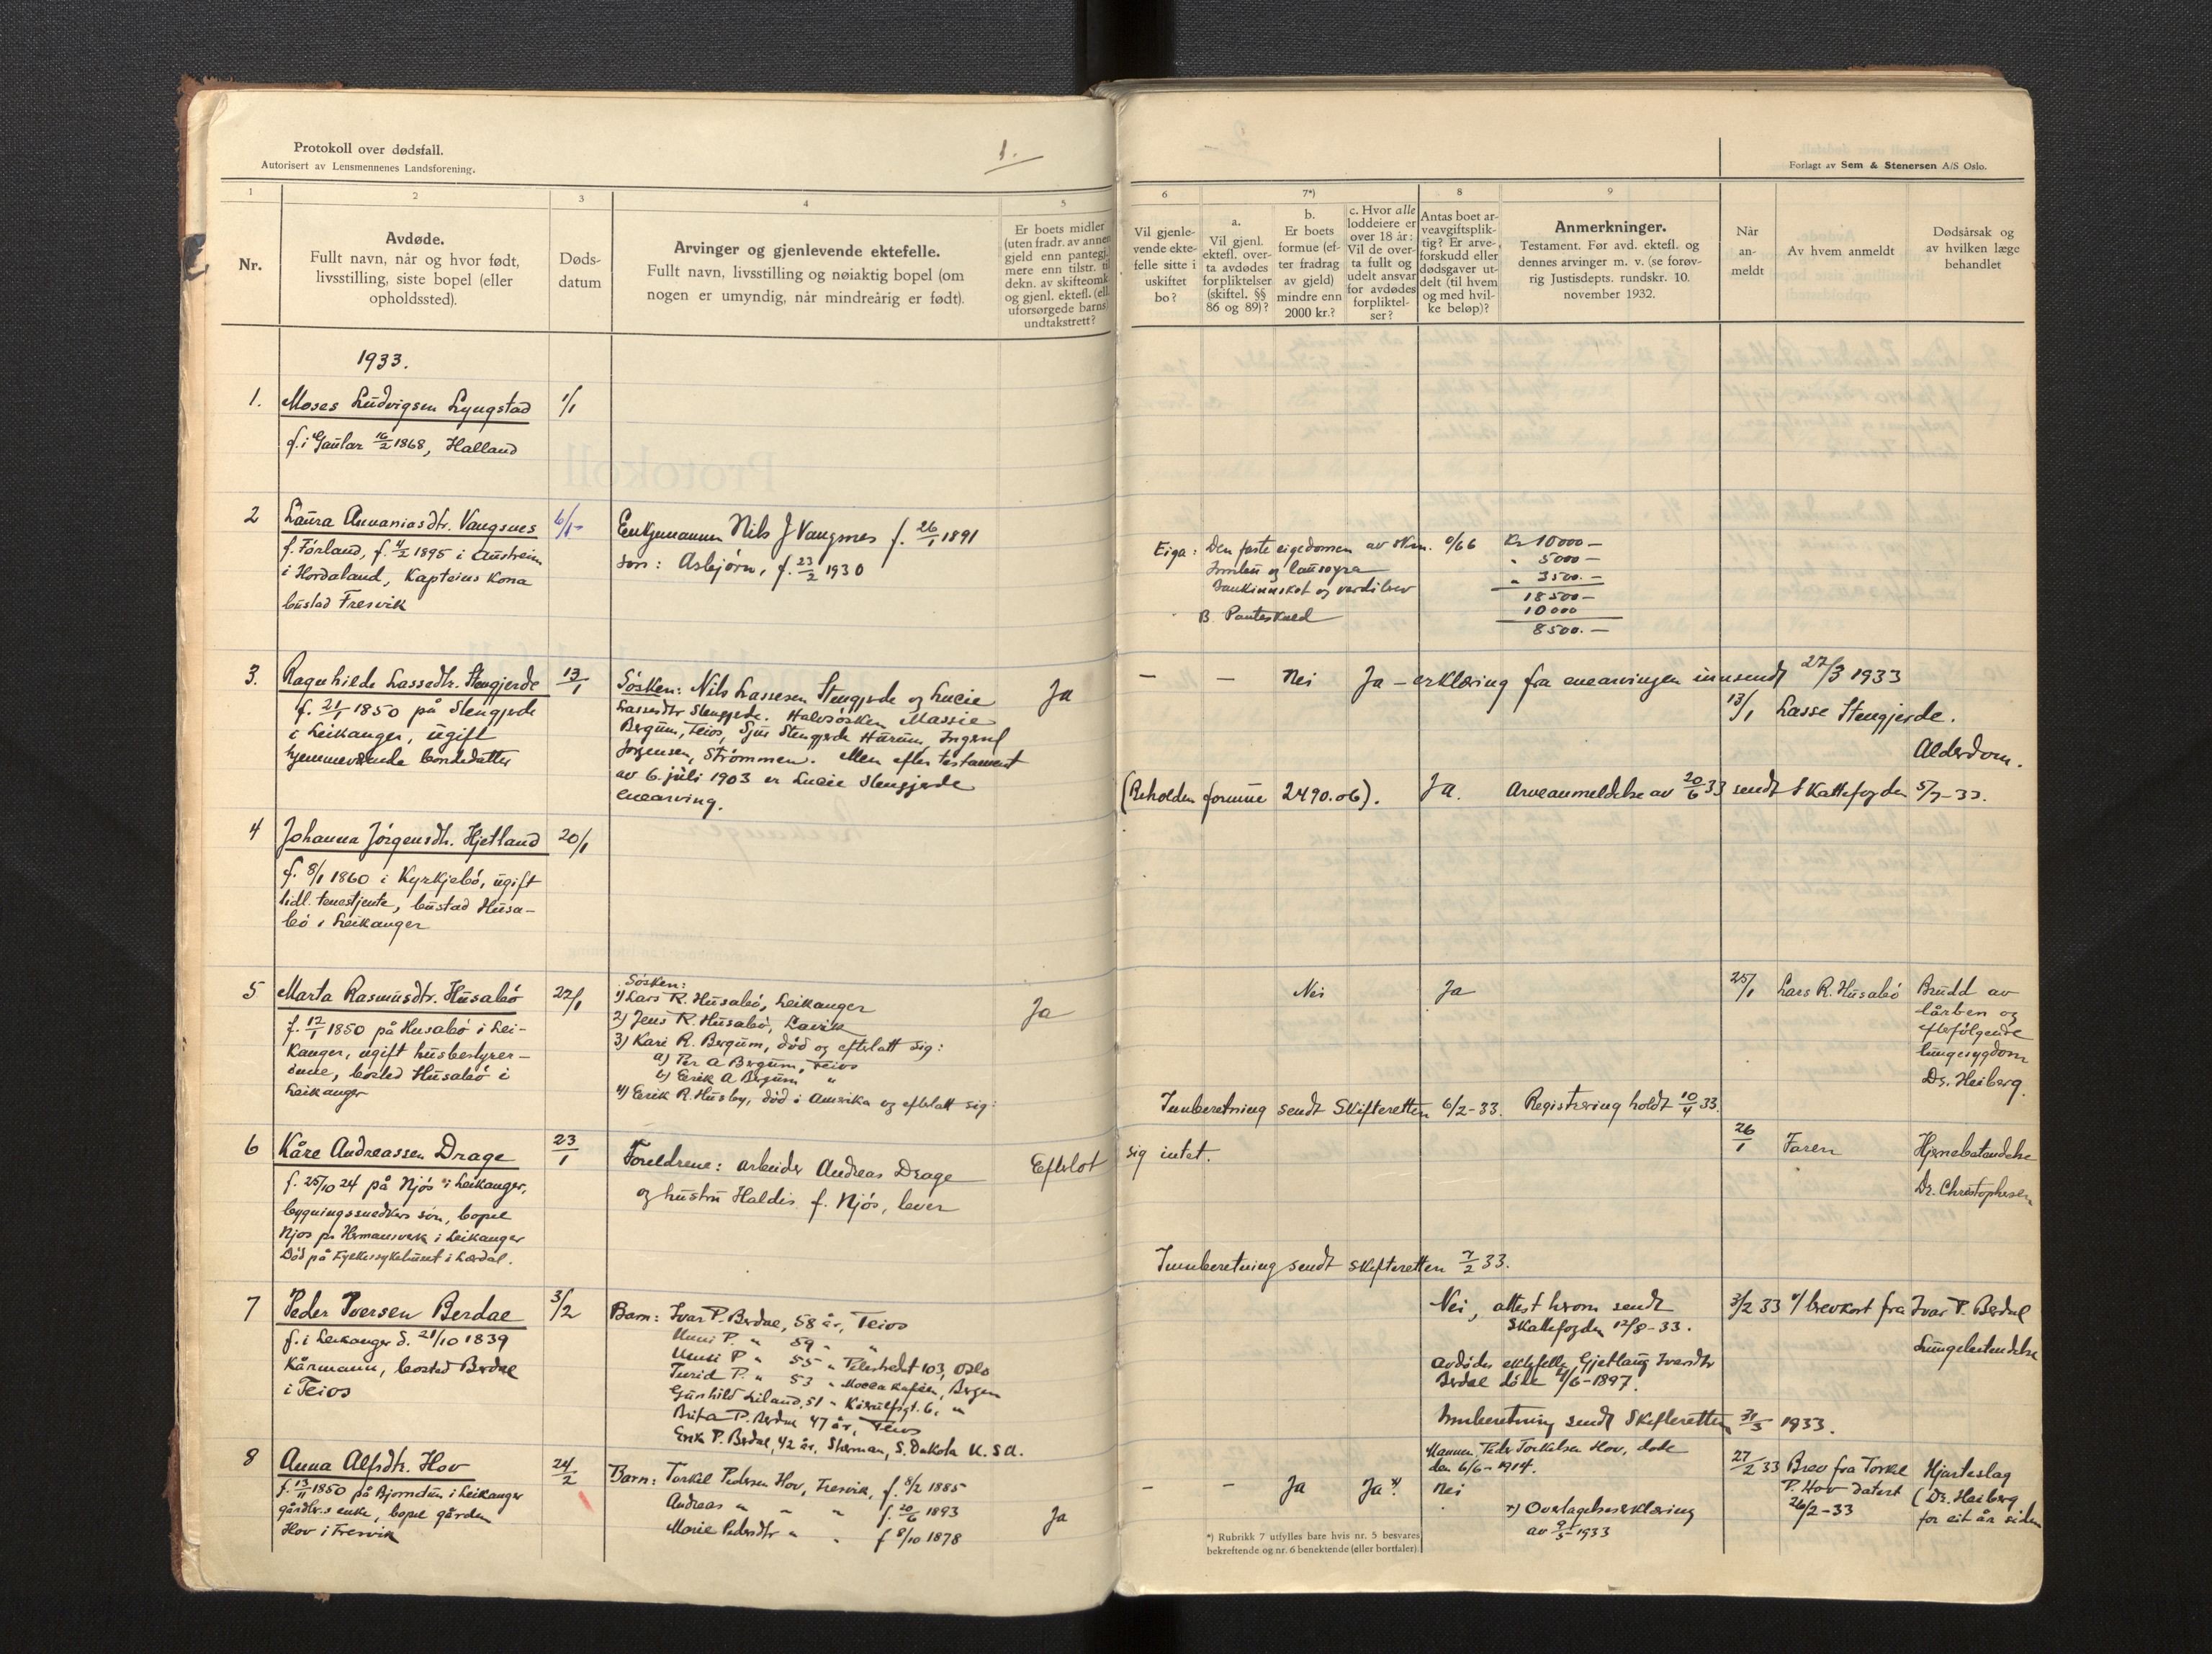 Protokoll over dødsfall.
Autorisert av Lensmennenes Landsforening.
1.
1
2
3
4
5
Nr.
Avdøde.
Fullt navn, når og hvor født,
livsstilling, siste bopel (eller
opholdssted).
Døds-
datum
Arvinger og gjenlevende ektefelle.
Fullt navn, livsstilling og nøiaktig bopel (om
nogen er umyndig, når mindreårig er født).
Er boets midler
(uten fradr. av annen
gjeld enn pantegj.)
mere enn tilstr. til
dekn. av skifteomk.
og gjenl. ektef. (ell.
uforsørgede barns)
undtakstrett?
1933.
1. Moses Ludvigsen Lyngstad 1/1
f. i Gaular 16/2 1868, Halland
2 Laura Ananiasdtr. Vangsnes 6/1 Enkjemannen Nils J Vangsnes f. 26/1 1891
f. Førland, f. 4/2 1895 i Austrheim
son: Asbjørn, f. 23/2 1930
i Hordaland, Kapteins Kona
bustad Fresvik
3. Ragnhilde Lassedtr. Stengjerde 13/1 Søsken: Nils Lassesen Stengjerde og Lucie Ja
f. 21/1 1850 på Stengjerde
Lassesdtr Stengjerde. Halvsøsken Massie
i Leikanger, ugift
Bergum, Teios, Sjur Stengjerde Hurum, Ingerd
hjemmeværende bondedatter
Jørgensen, Strømmen. Men efter testament
av 6. juli 1903 er Lucie Stengjerde
enearving.
4 Johanna Jørgensdtr. Hjetland 20/1
f. 8/1 1860 i Kyrkjebø, ugift
tidl. tenestjente, bustad Husa-
bø i Leikanger
5 Marta Rasmusdtr. Husabø 22/1 Søsken:
1) Lars R. Husabø, Leikanger Ja
f. 12/1 1850 på Husabø i Lei-
2) Jens R. Husabø, Lavik
kanger, ugift husbestyrer-
3) Kari R. Bergum, død og efterlatt sig:
inne, bosted Husabø i
a) Per A Bergum, Teios
Leikanger
b) Eirik A Bergum "
4) Eirik R. Husby, død i Amerika og efterlatt sig:
6 Kåre Andreassen Drage 23/1 Foreldrene: arbeider Andreas Drage Efterlot
f. 25/10 24 på Njøs i Leikanger,
og hustru Haldis f. Njøs, lever
bygningssnedkers søn, bopel
Njøs pr. Hermansverk i Leikanger
Død på Fylkessykehuset i Lærdal.
7 Peder Iversen Berdal 3/2 Barn: Ivar P. Berdal, 58 år, Teios
f. i Leikanger d. 21/10 1839
Unni P. " 59 " "
Kårmann, bosted Berdal
Unni P " 55 " 103, Oslo
i Teios
Turid P. " 53 " Mocca Kaféen, Bergen
Gunhild Leiland, 51 " 6, "
Brita P. Berdal 47 år, Teios
Eirik P. Berdal, 42 år, Sherman, S. Dakota U.S.A.
8 Anna Alfsdtr. Hov 24/2 Barn: Torkel Pedersen Hov, Fresvik, f. 8/2 1885
f. 13/11 1850 på Bjørnetun i Leikanger
Andreas " " " f. 20/6 1893 Ja
gårdbr.s enke, bopel gården
Marie Pedersdtr " " f 8/10 1878
Hov i Fresvik
Forlagt av Sem & Stenersen A/S Oslo.
6
7*)
8
9
Vil gjenle-
vende ekte-
felle sitte i
uskiftet
bo?
a.
Vil gjenl.
ektefl. over-
ta avdødes
forpliktelser
(skiftel. §§
86 og 89)?
b.
Er boets
formue (ef-
ter fradrag
av gjeld)
mindre enn
2000 kr.?
c. Hvor alle
loddeiere er
over 18 år:
Vil de over-
ta fullt og
udelt ansvar
for avdødes
forpliktel-
ser?
Antas boet ar-
veavgiftsplik-
tig? Er arve-
forskudd eller
dødsgaver ut-
delt (til hvem
og med hvil-
ke beløp)?
Anmerkninger.
Testament. Før avd. ektefl. og
dennes arvinger m. v. (se forøv-
rig Justisdepts. rundskr. 10.
november 1932.
Når
an-
meldt
Av hvem anmeldt
Dødsårsak og
av hvilken læge
behandlet
Eiga: Den faste eigedomen av skm. 0/66 Kr 10000-
Innbu og lausøyra " 5000-
Bankinnskot og verdibrev " 3500.-
18500-
B. Panteskuld 10000
8500.-
- - Nei Ja - erklæring fra enearvingen innsendt 27/3 1933
13/1 Lasse Stengjerde.
Alderdom.
(Beholden formue 2490.06). Ja. Arveanmeldelse av 20/6 33 sendt Skattefogden 5/7-33.
Nei Ja 25/1 Lars R. Husabø Brudd av
lårben og
efterfølgende
lungesygdom
Dr. Heiberg.
Innberetning sendt Skifteretten 6/2-33. Registrering holdt 10/4 33.
sig intet. 26/1 Faren Hjernebetendelse
Dr. Christophersen
Innberetning sendt skifteretten 7/2 33.
Nei, attest herom sendt 3/2 33 v/ brevkort fra Ivar P. Berdal
Skattefogden 12/8-33.
Lungebetendelse
Avdødes ektefelle, Gjetlaug Ivarsdtr
Berdal døde 4/6-1897.
Innberetning sendt Skifteretten 31/3 1933.
Mannen, Peder Torkelsen Hov, døde
den 6/6-1914.
- - Ja Ja x). Nei 27/2 33 Brev fra Torkel Hjarteslag
P. Hov datert (Dr. Heiberg
x) Overtagelseserklæring 26/2-33 for eit år siden
av 9/5-1933
*) Rubrikk 7 utfylles bare hvis nr. 5 besvares
bekreftende og nr. 6 benektende (eller bortfaler).